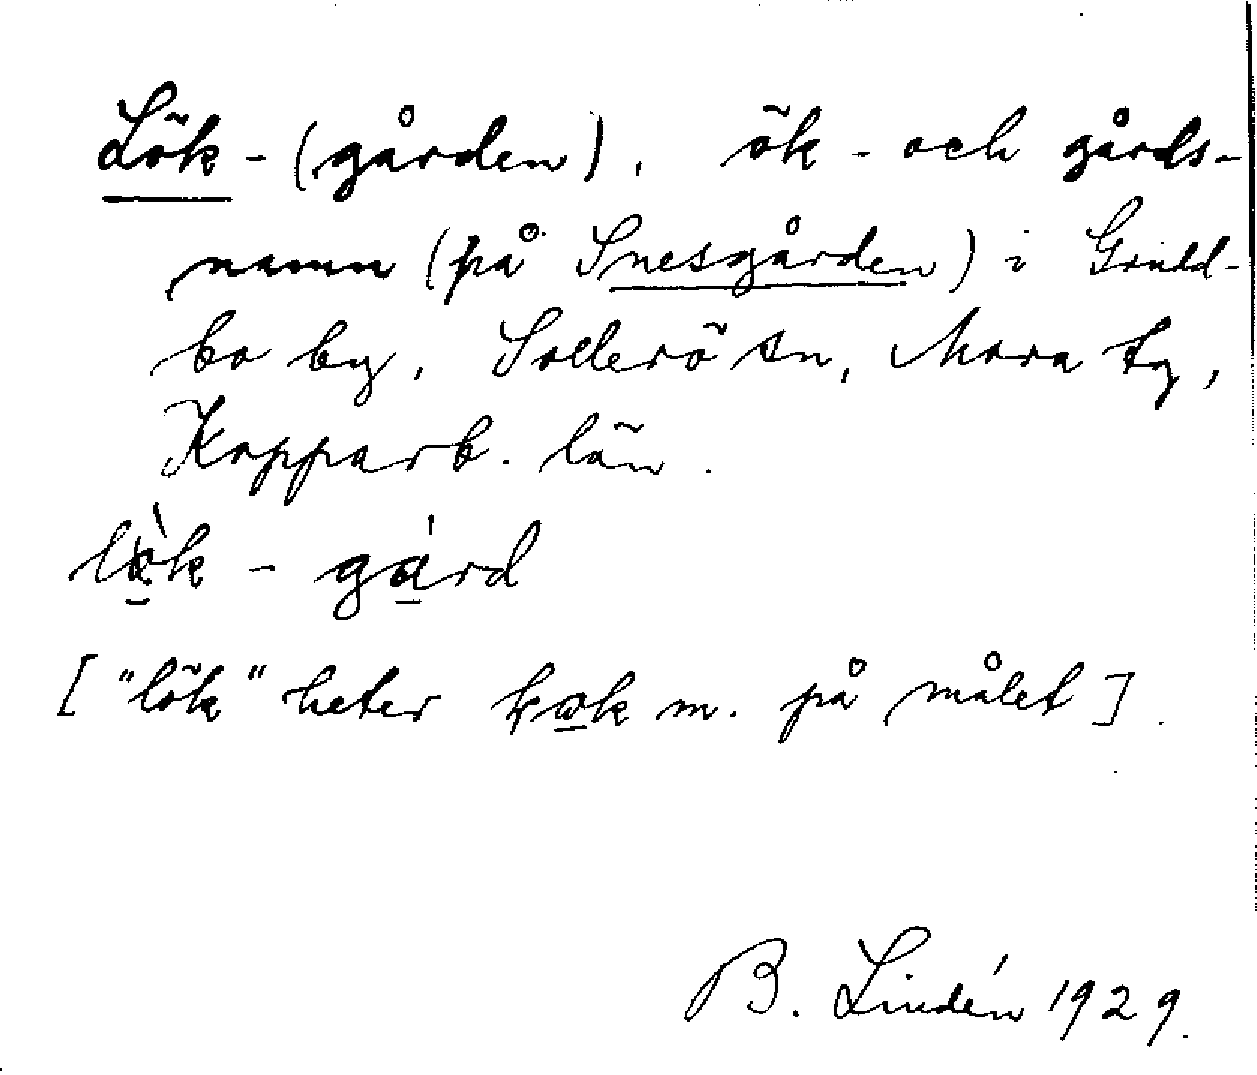 Lök-(gården), ök- och gårds-
namn (på Snesgården) i Gruld-
bo by, Sollerö sn, Mora tg,
Kopparb. län.
lòk - gárd
["lök" heter kok m. på målet].
B. Lindén 1929.